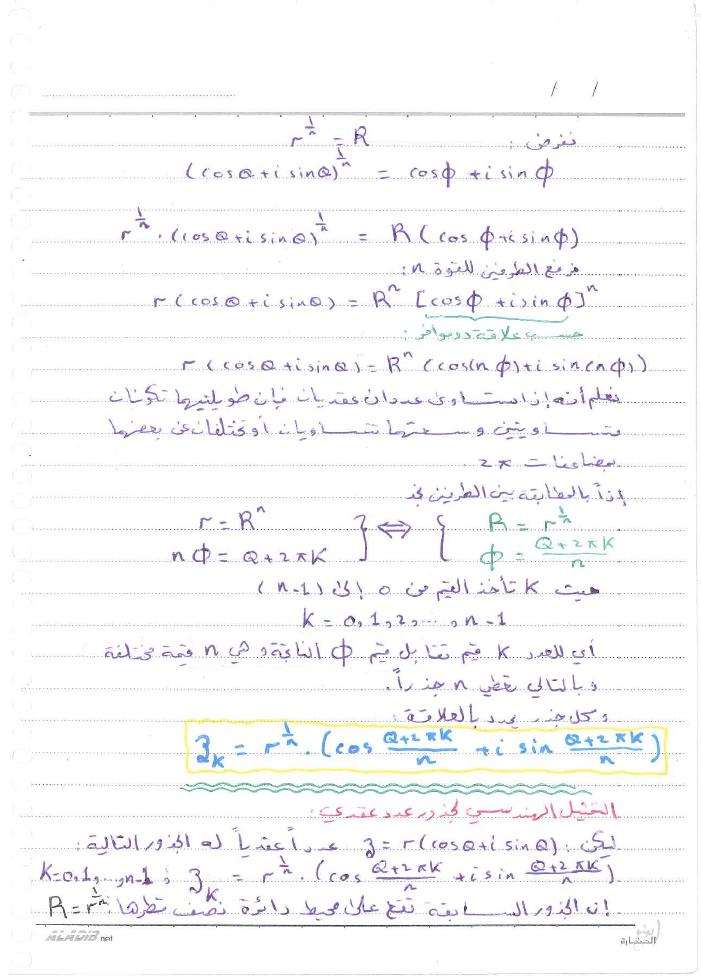 / /
نفرض: r^{1/n} = R
(cosθ+i sinθ)^{1/n} = cosϕ + i sinϕ
r^{1/n} · (cosθ+i sinθ)^{1/n} = R(cosϕ+i sinϕ)
نرفع الطرفين للقوة n:
r(cosθ+i sinθ) = R^n [cosϕ + i sinϕ]^n
حسب علاقة دوموافر:
r(cosθ+i sinθ) = R^n (cos(nϕ)+i sin(nϕ))
نعلم أنه إذا تساوى عددان عقديان فإن طويلتيهما تكونان
متساويتين وسعتهما تتساويان أو تختلفان عن بعضهما
بمضاعفات 2π.
إذاً بالمطابقة بين الطرفين نجد
r = R^n } ⇔ { R = r^{1/n}
nϕ = θ+2πK } ⇔ { ϕ = \frac{θ+2πK}{n}
حيث K تأخذ القيم من 0 إلى (n-1)
K = 0,1,2,...,n-1
أي للعدد K قيم تقابل قيم ϕ الناتجة وهي n قيمة مختلفة
وبالتالي نعطي n جذراً.
وكل جذر يحدد بالعلاقة:
z_K = r^{1/n} · (cos \frac{θ+2πK}{n} + i sin \frac{θ+2πK}{n})
التمثيل الهندسي لجذور عدد عقدي:
ليكن: z = r(cosθ+i sinθ) عدداً عقدياً له الجذور التالية:
z_K = r^{1/n} · (cos \frac{θ+2πK}{n} + i sin \frac{θ+2πK}{n}) ; K=0,1,...,n-1
إن الجذور السابقة تقع على محيط دائرة نصف قطرها: R = r^{1/n}
ALADIB.net
الحضارة